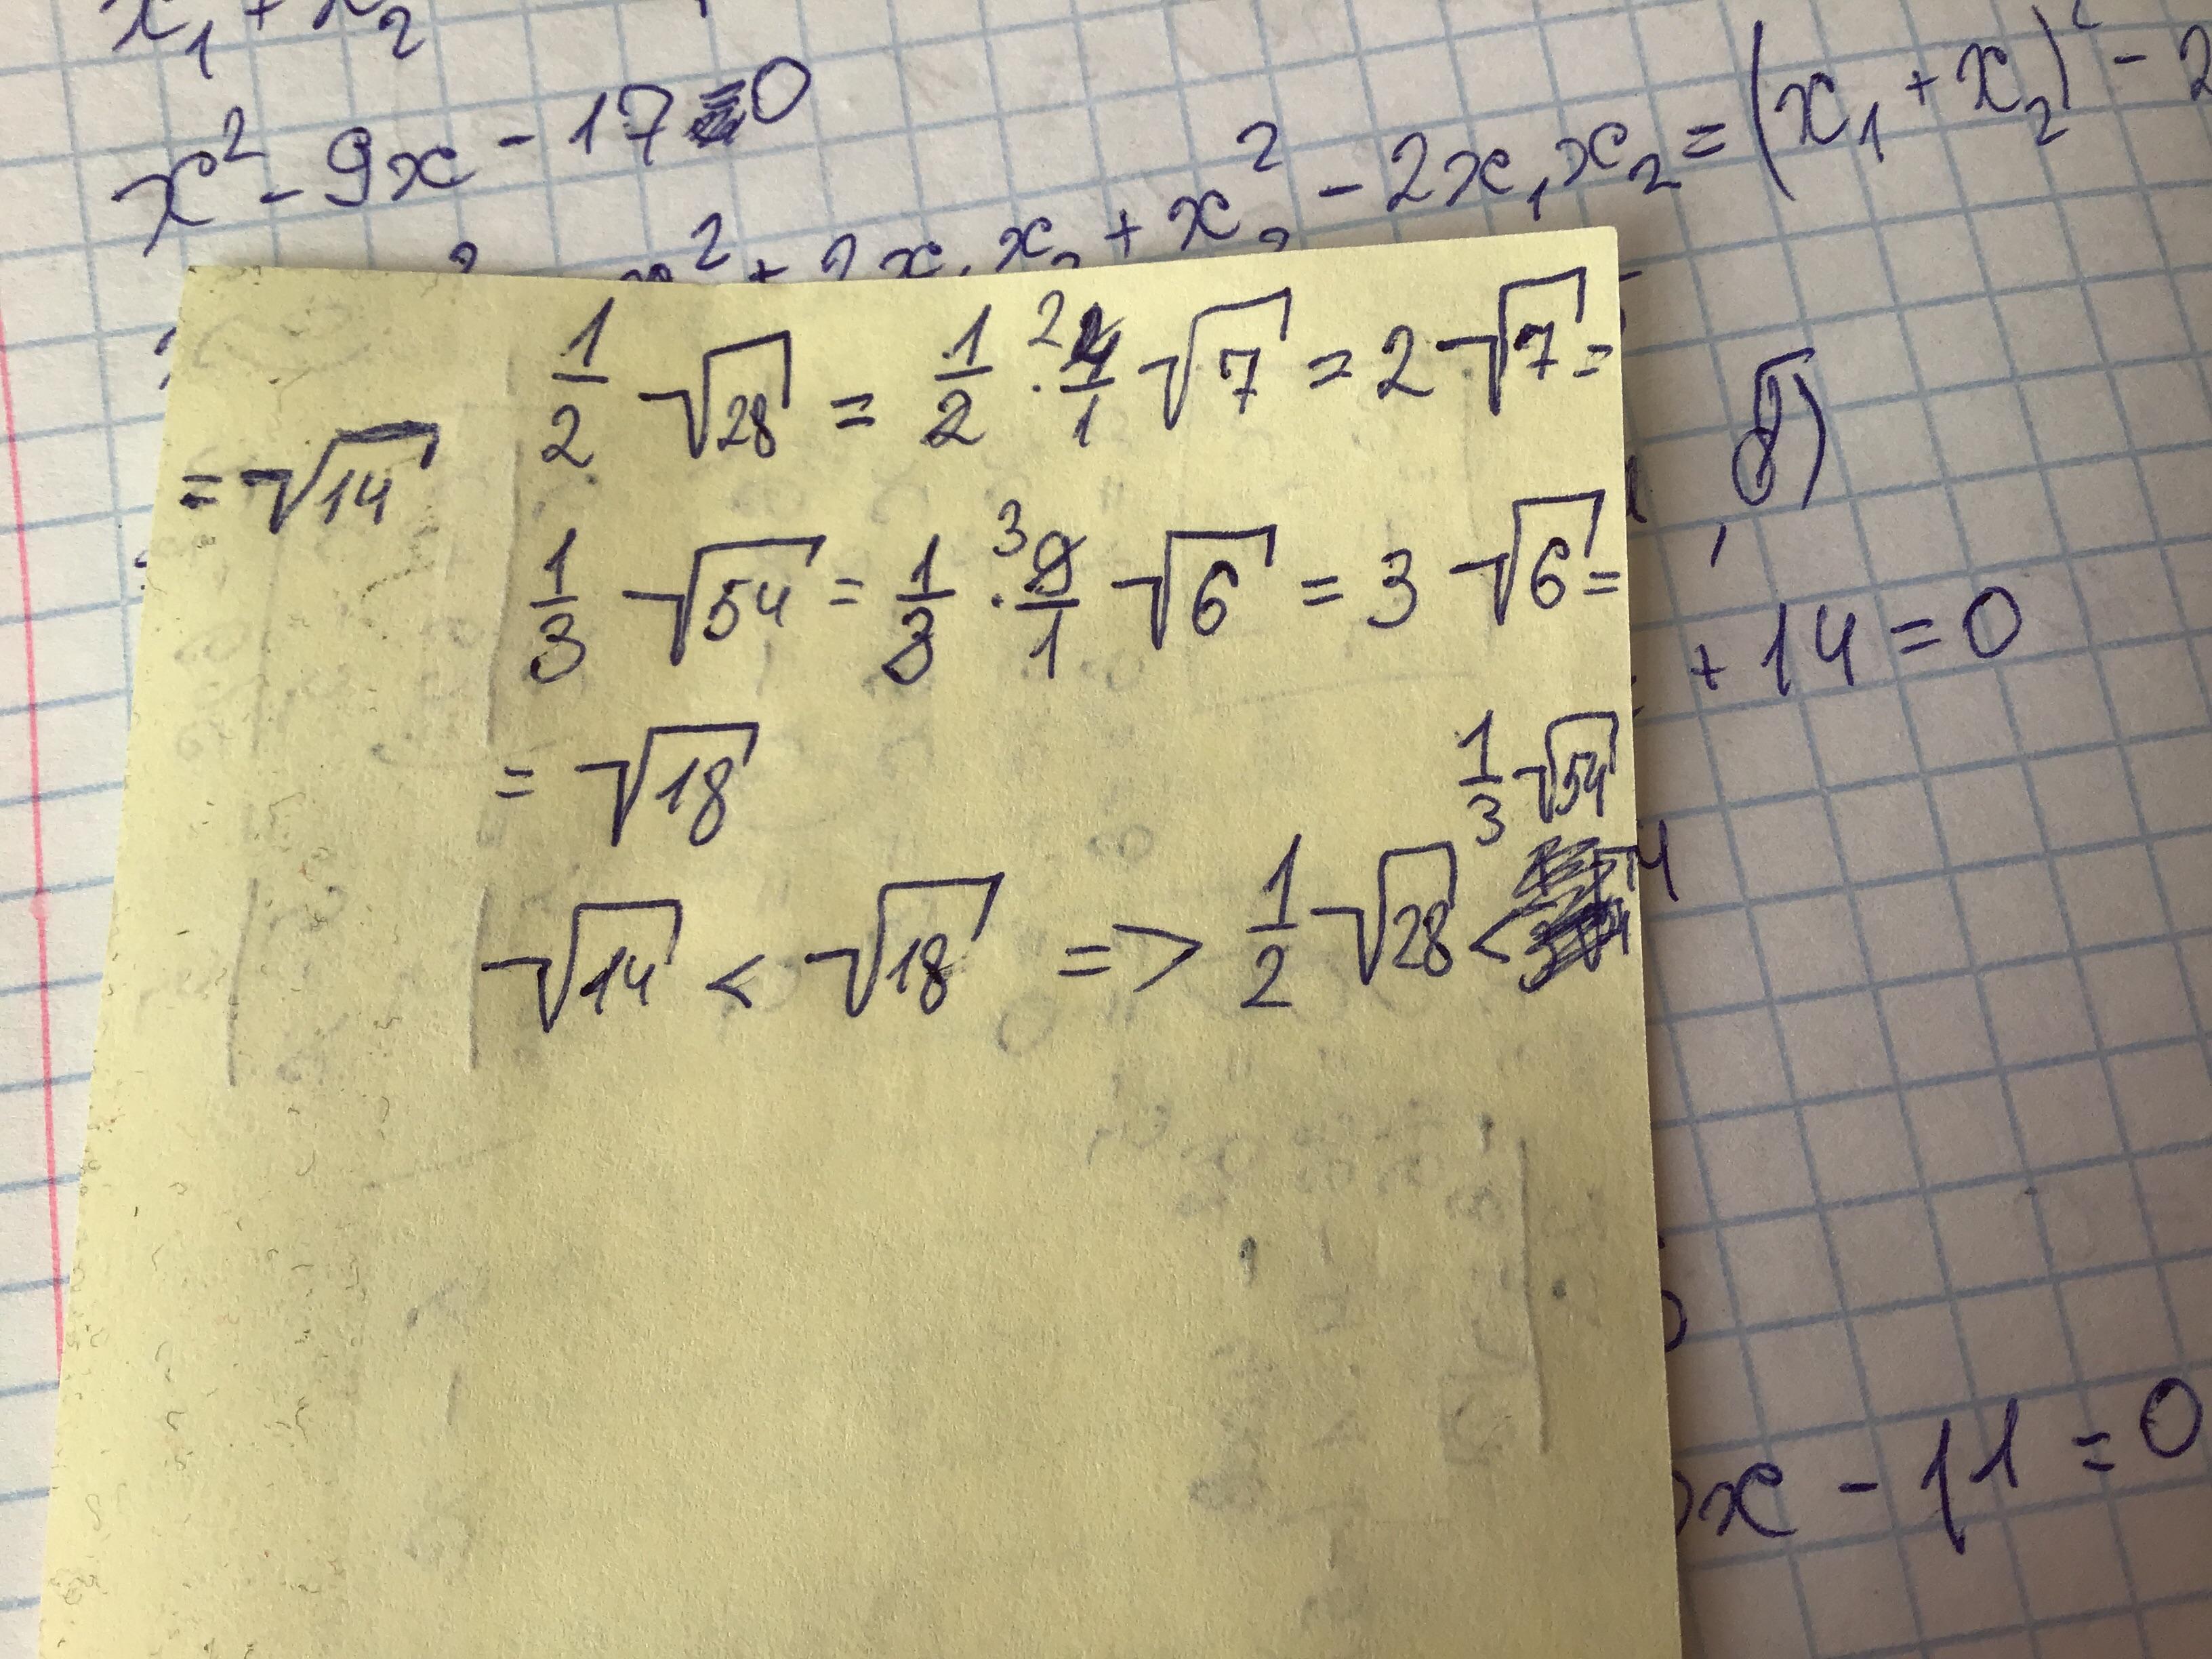 x₁ + x₂
x² - 9x - 17 = 0
- 2x₁x₂ = (x₁ + x₂)² - 2
x² + 2x₁x₂ + x₂²
1/2 √28 = 1/2 · 4/1 2 √7 = 2√7 =
= √14
1/3 √54 = 1/3 · 9/1 3 √6 = 3 √6 =
= √18
√14 < √18 => 1/2 √28 < 1/3 √54
+ 14 = 0
x - 11 = 0